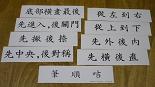 底部橫畫最後
從左到右
先進入,後關門
從上到下
先撇後捺
先外後內
先中央,後對稱
先橫後直
筆順咭